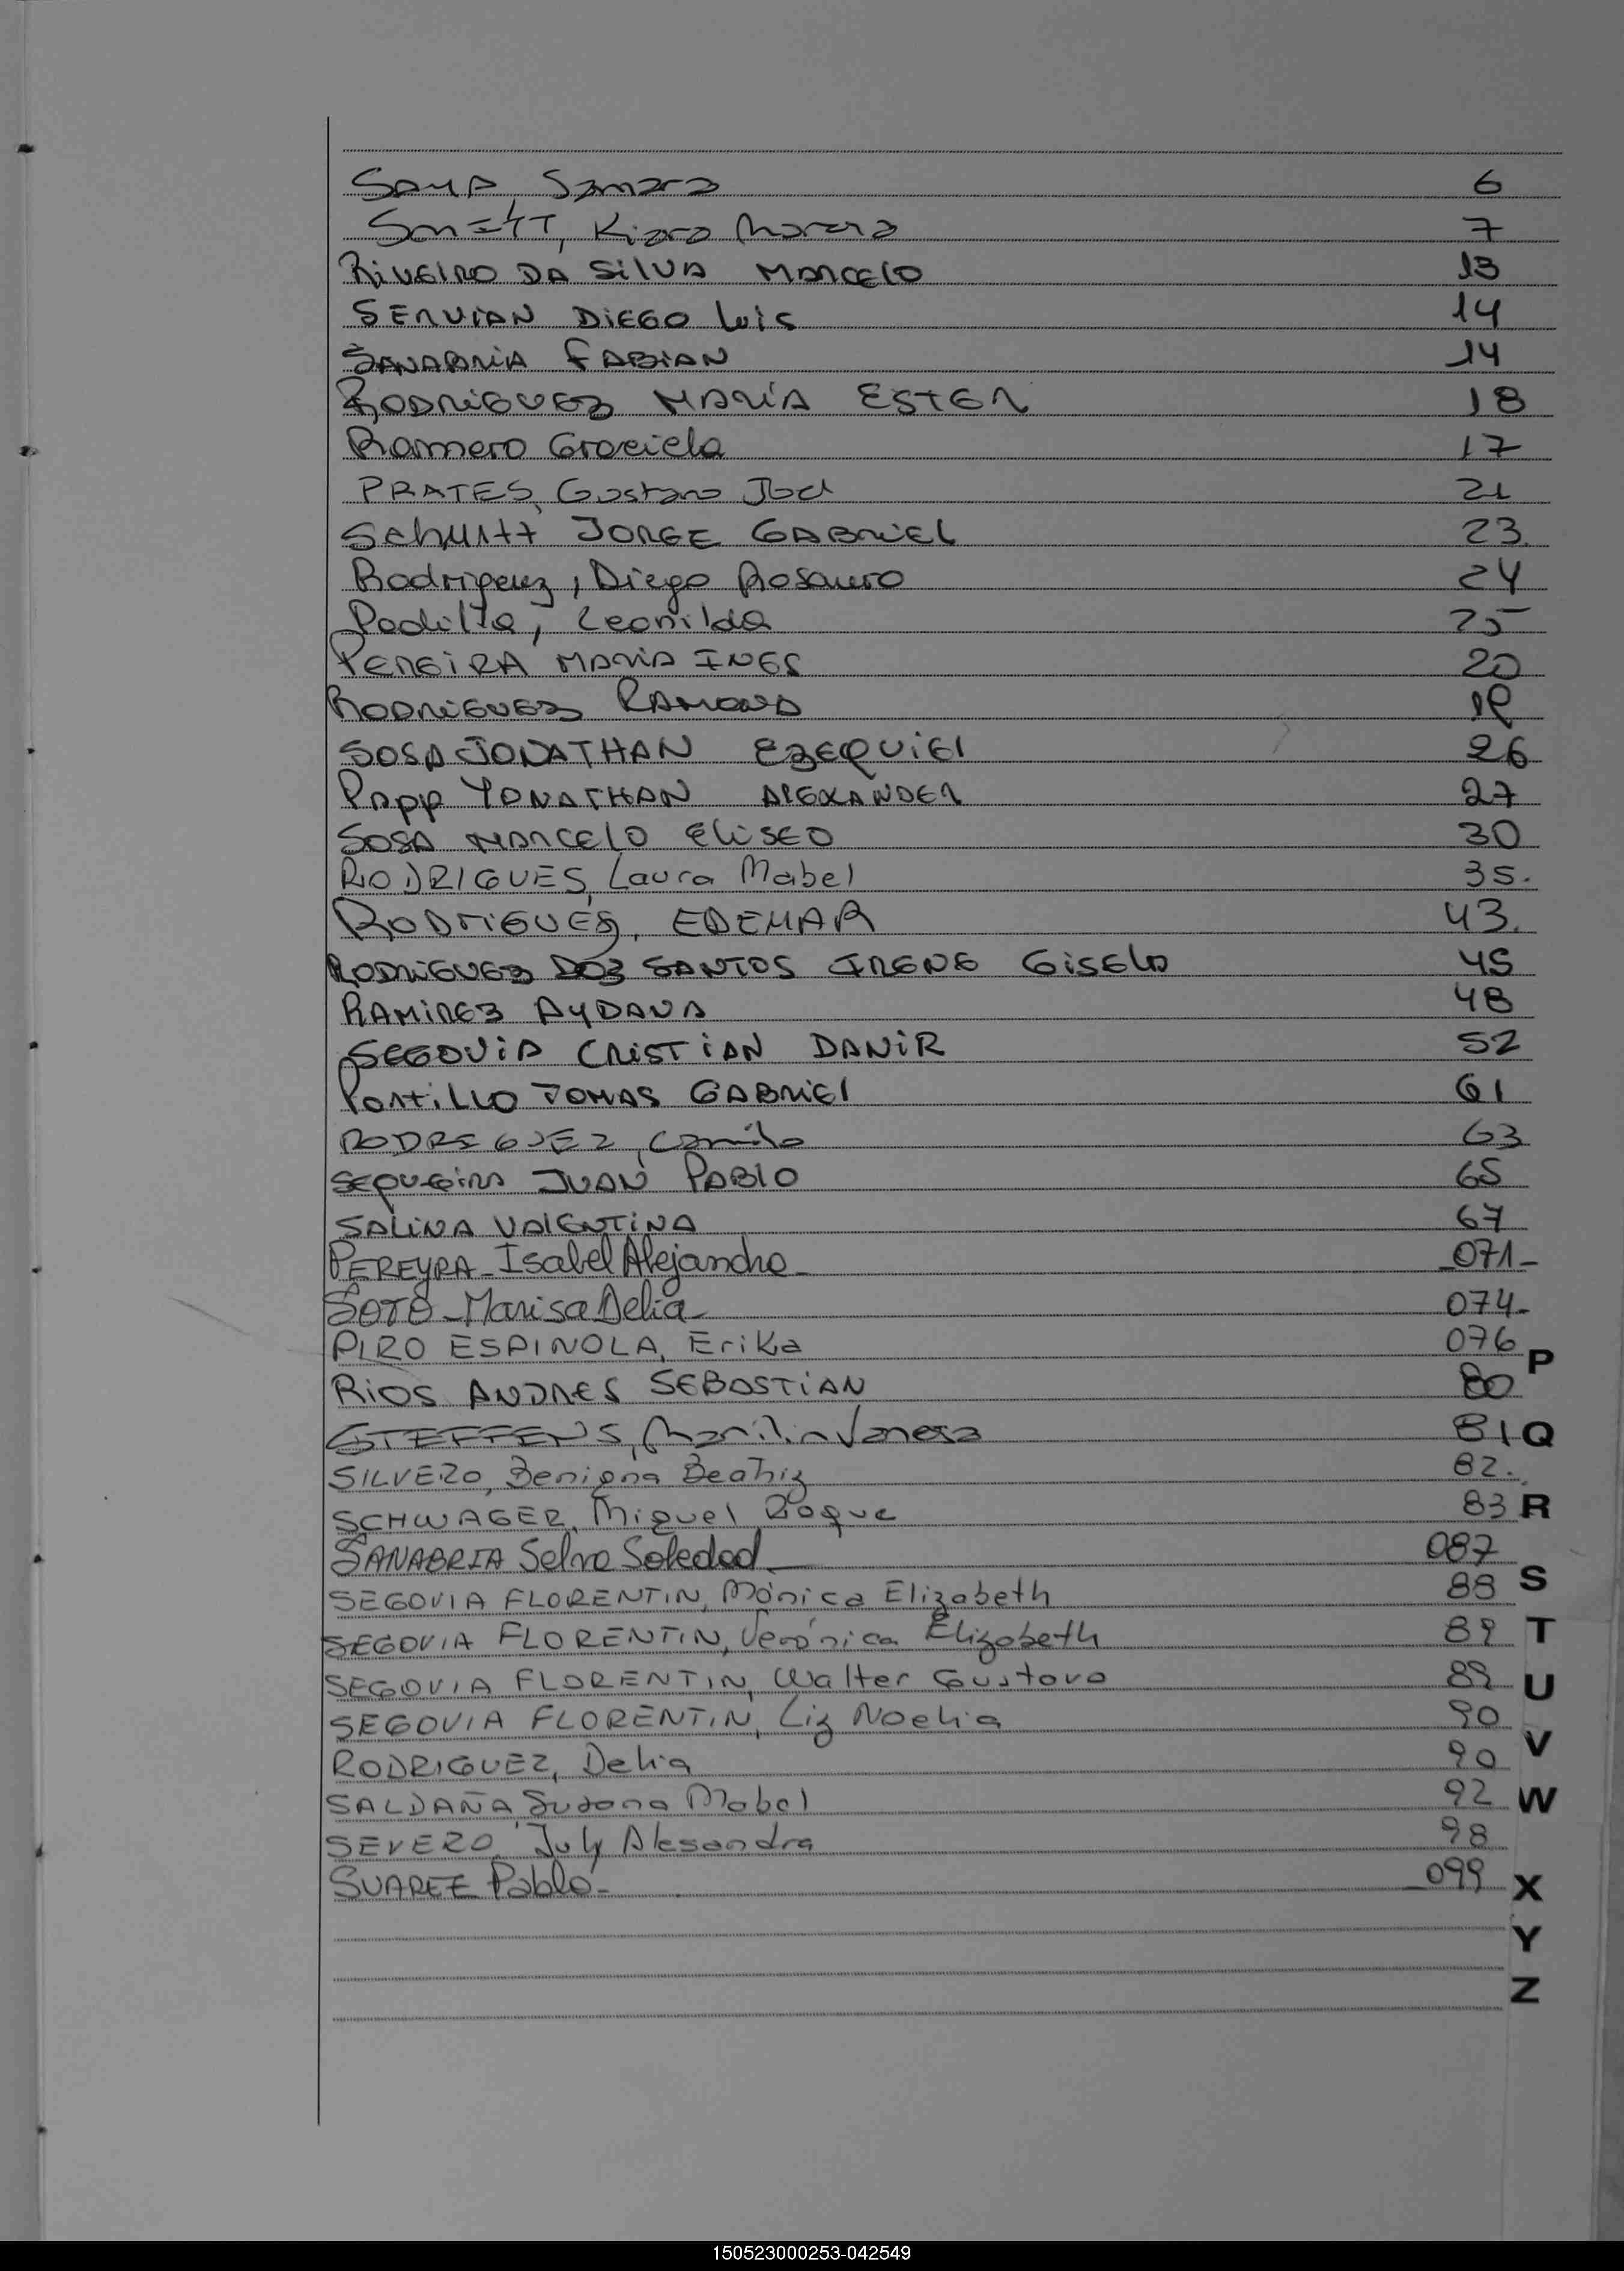 Samara 6
Kiara 7
RIVEIRO DA SILVA MARCELO 13
SERVIAN DIEGO Luis 14
SANABRIA FABIAN 14
RODRIGUEZ MARÍA ESTER 18
Romero Graciela 17
PRATES, Gustavo Joel 21
SChMitt JORGE GABRIEL 23.
Rodriguez, Diego Rosauro 24
Padilla, Leonilda 25
PEREIRA MARIA INES 20
RODRIGUEZ RAMONA
SOSA JONATHAN EZEQUIEL 26
Papp YONATHAN ALEXANDER 27
SOSA MARCELO ELISEO 30
RIODRIGUES, Laura Mabel 35.
RODRIGUES, EDEMAR 43.
RODRIGUEZ DOS SANTOS IRENE GISELA 45
RAMIREZ AYDANA 48
SEGOVIA CRISTIAN DANIR 52
PORTILLO TOMAS GABRIEL 61
RODRIGUEZ, Camila 63
SEQUEIRA JUAN PABLO 65
SALINA VALENTINA 67
PEREYRA - Isabel Alejandra - 071 -
SOTO - Marisa Delia - 074-
PIRO ESPINOLA, Erika 076
P
RIOS ANDRES SEBASTIAN 80
STEFFENS, Vanesa 81 Q
SILVERO, Benigna Beatriz 82.
SCHWAGER, Miguel Roque 83 R
SANABRIA Selva Soledad 087
SEGOVIA FLORENTIN, Mónica Elizabeth 88 S
SEGOVIA FLORENTIN, Verónica Elizabeth 89 T
SEGOVIA FLORENTIN, Walter Gustavo 89 U
SEGOVIA FLORENTIN, Liz Noelia 90
RODRIGUEZ, Delia 90 V
SALDAÑA, Susana Mabel 92 W
SEVERO, July Alesandra 98
SUAREZ Pablo - 099 X
Y
Z
150523000253-042549